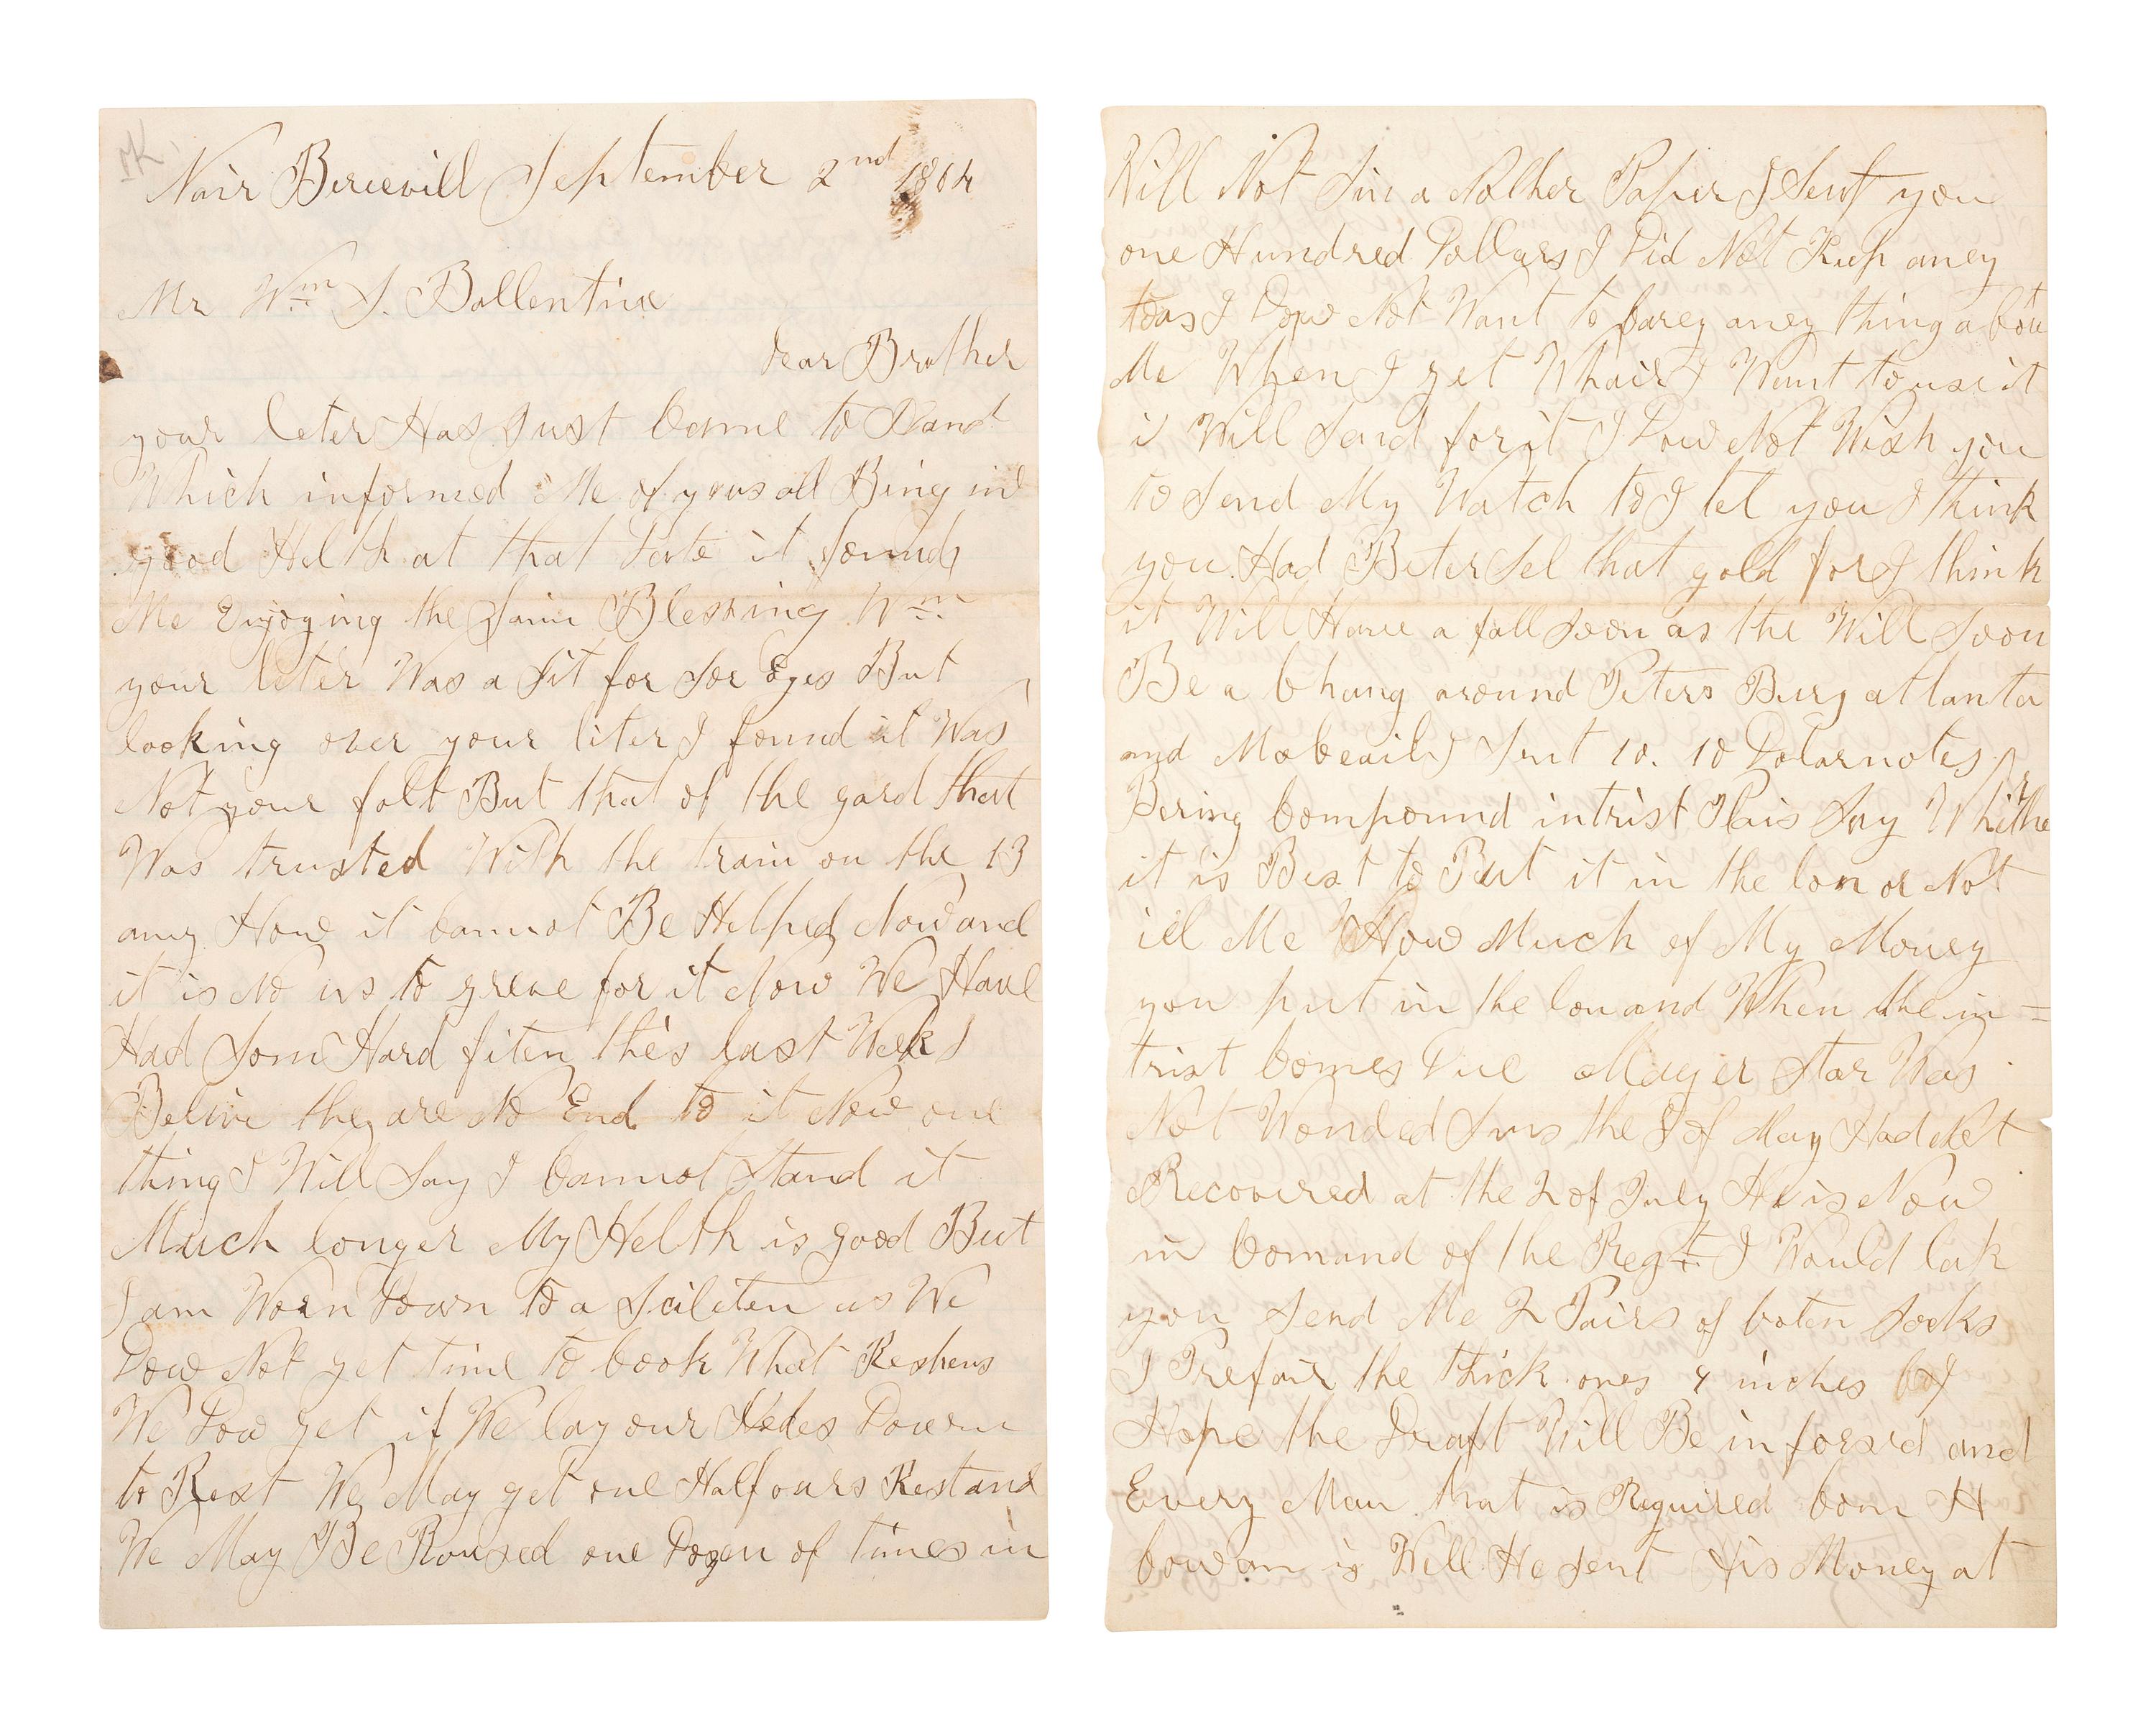 Nair Bereevill September 2nd 1864
Mr Wm S. Ballentine
dear Brother
your leter Has Just Come to Hand
Which informed Me of yous all Being in
good Helth at that Date it found
Me Enjoying the Saim Blessing Wm
your leter Was a Sit for Sor Eyes But
looking over your leter I found it Was
Not your folt But that of the gard that
Was trusted With the train on the 13
any How it Cannot Be Helped Now and
it is No us to greve for it Now We Have
Had Som Hard fiten this last Week I
Belive they are No End to it Now one
thing I Will Say I Cannot Stand it
Much longer My Helth is good But
I am Worn Down to a Scileten as We
Dow Not get time to Cook What Reshens
We Dow get if We lay our Hedes Down
to Rest We May get one Half ours Rest and
We May Be Roused one Dozen of times in
Will Not Sin a Nother Paper I Sent you
one Hundred Dollars I Did Not Keep aney
as I Dow Not Want to Carey aney thing abou
Me When I get Whair I Want to use it
i Will Send for it I Dow Not Wish you
to Send My Watch to I let you I think
you Had Beter Sel that gold for I think
it Will Have a fall Soon as the Will Soon
Be a Chang around Peters Burg atlanta
and Mobeail I Sent 10. 10 Dolar notes
Bering Compound intrist Plais Say Whithe
it is Best to Put it in the lon or Not
tel Me How Much of My Money
you put in the lon and When the in=
trist Comes Due Mayer Star Was
Not Wonded Sins the 5 of May Had Not
Recovered at the 2 of July He is Now
in Comand of the Regt I Would lak
you Send Me 2 Pairs of Coten Socks
I Prefair the thick ones 9 inches I
Hope the Draft Will Be inforsed and
Every Man that is Required Com H
Cowan is Well He sent His Money at